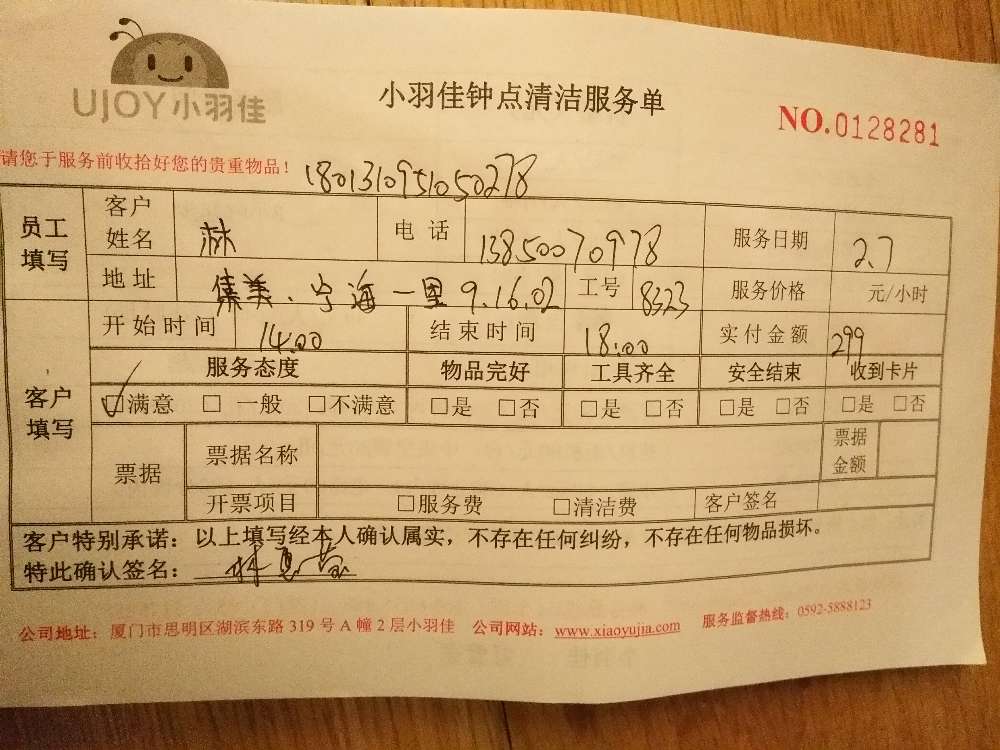 UJOY小羽佳
小羽佳钟点清洁服务单
NO.0128281
请您于服务前收拾好您的贵重物品！ 1801310951050278
员工填写 客户姓名 林 电话 13850070978 服务日期 2.7
地址 集美.宁海一里 9.16.02 工号 8323 服务价格 元/小时
客户填写 开始时间 14:00 结束时间 18:00 实付金额 299
服务态度 物品完好 工具齐全 安全结束 收到卡片
✓□满意 □一般 □不满意 □是 □否 □是 □否 □是 □否 □是 □否
票据 票据名称 票据金额
开票项目 □服务费 □清洁费 客户签名
客户特别承诺：以上填写经本人确认属实，不存在任何纠纷，不存在任何物品损坏。
特此确认签名：
公司地址：厦门市思明区湖滨东路319号A幢2层小羽佳 公司网站：www.xiaoyujia.com 服务监督热线：0592-5888123